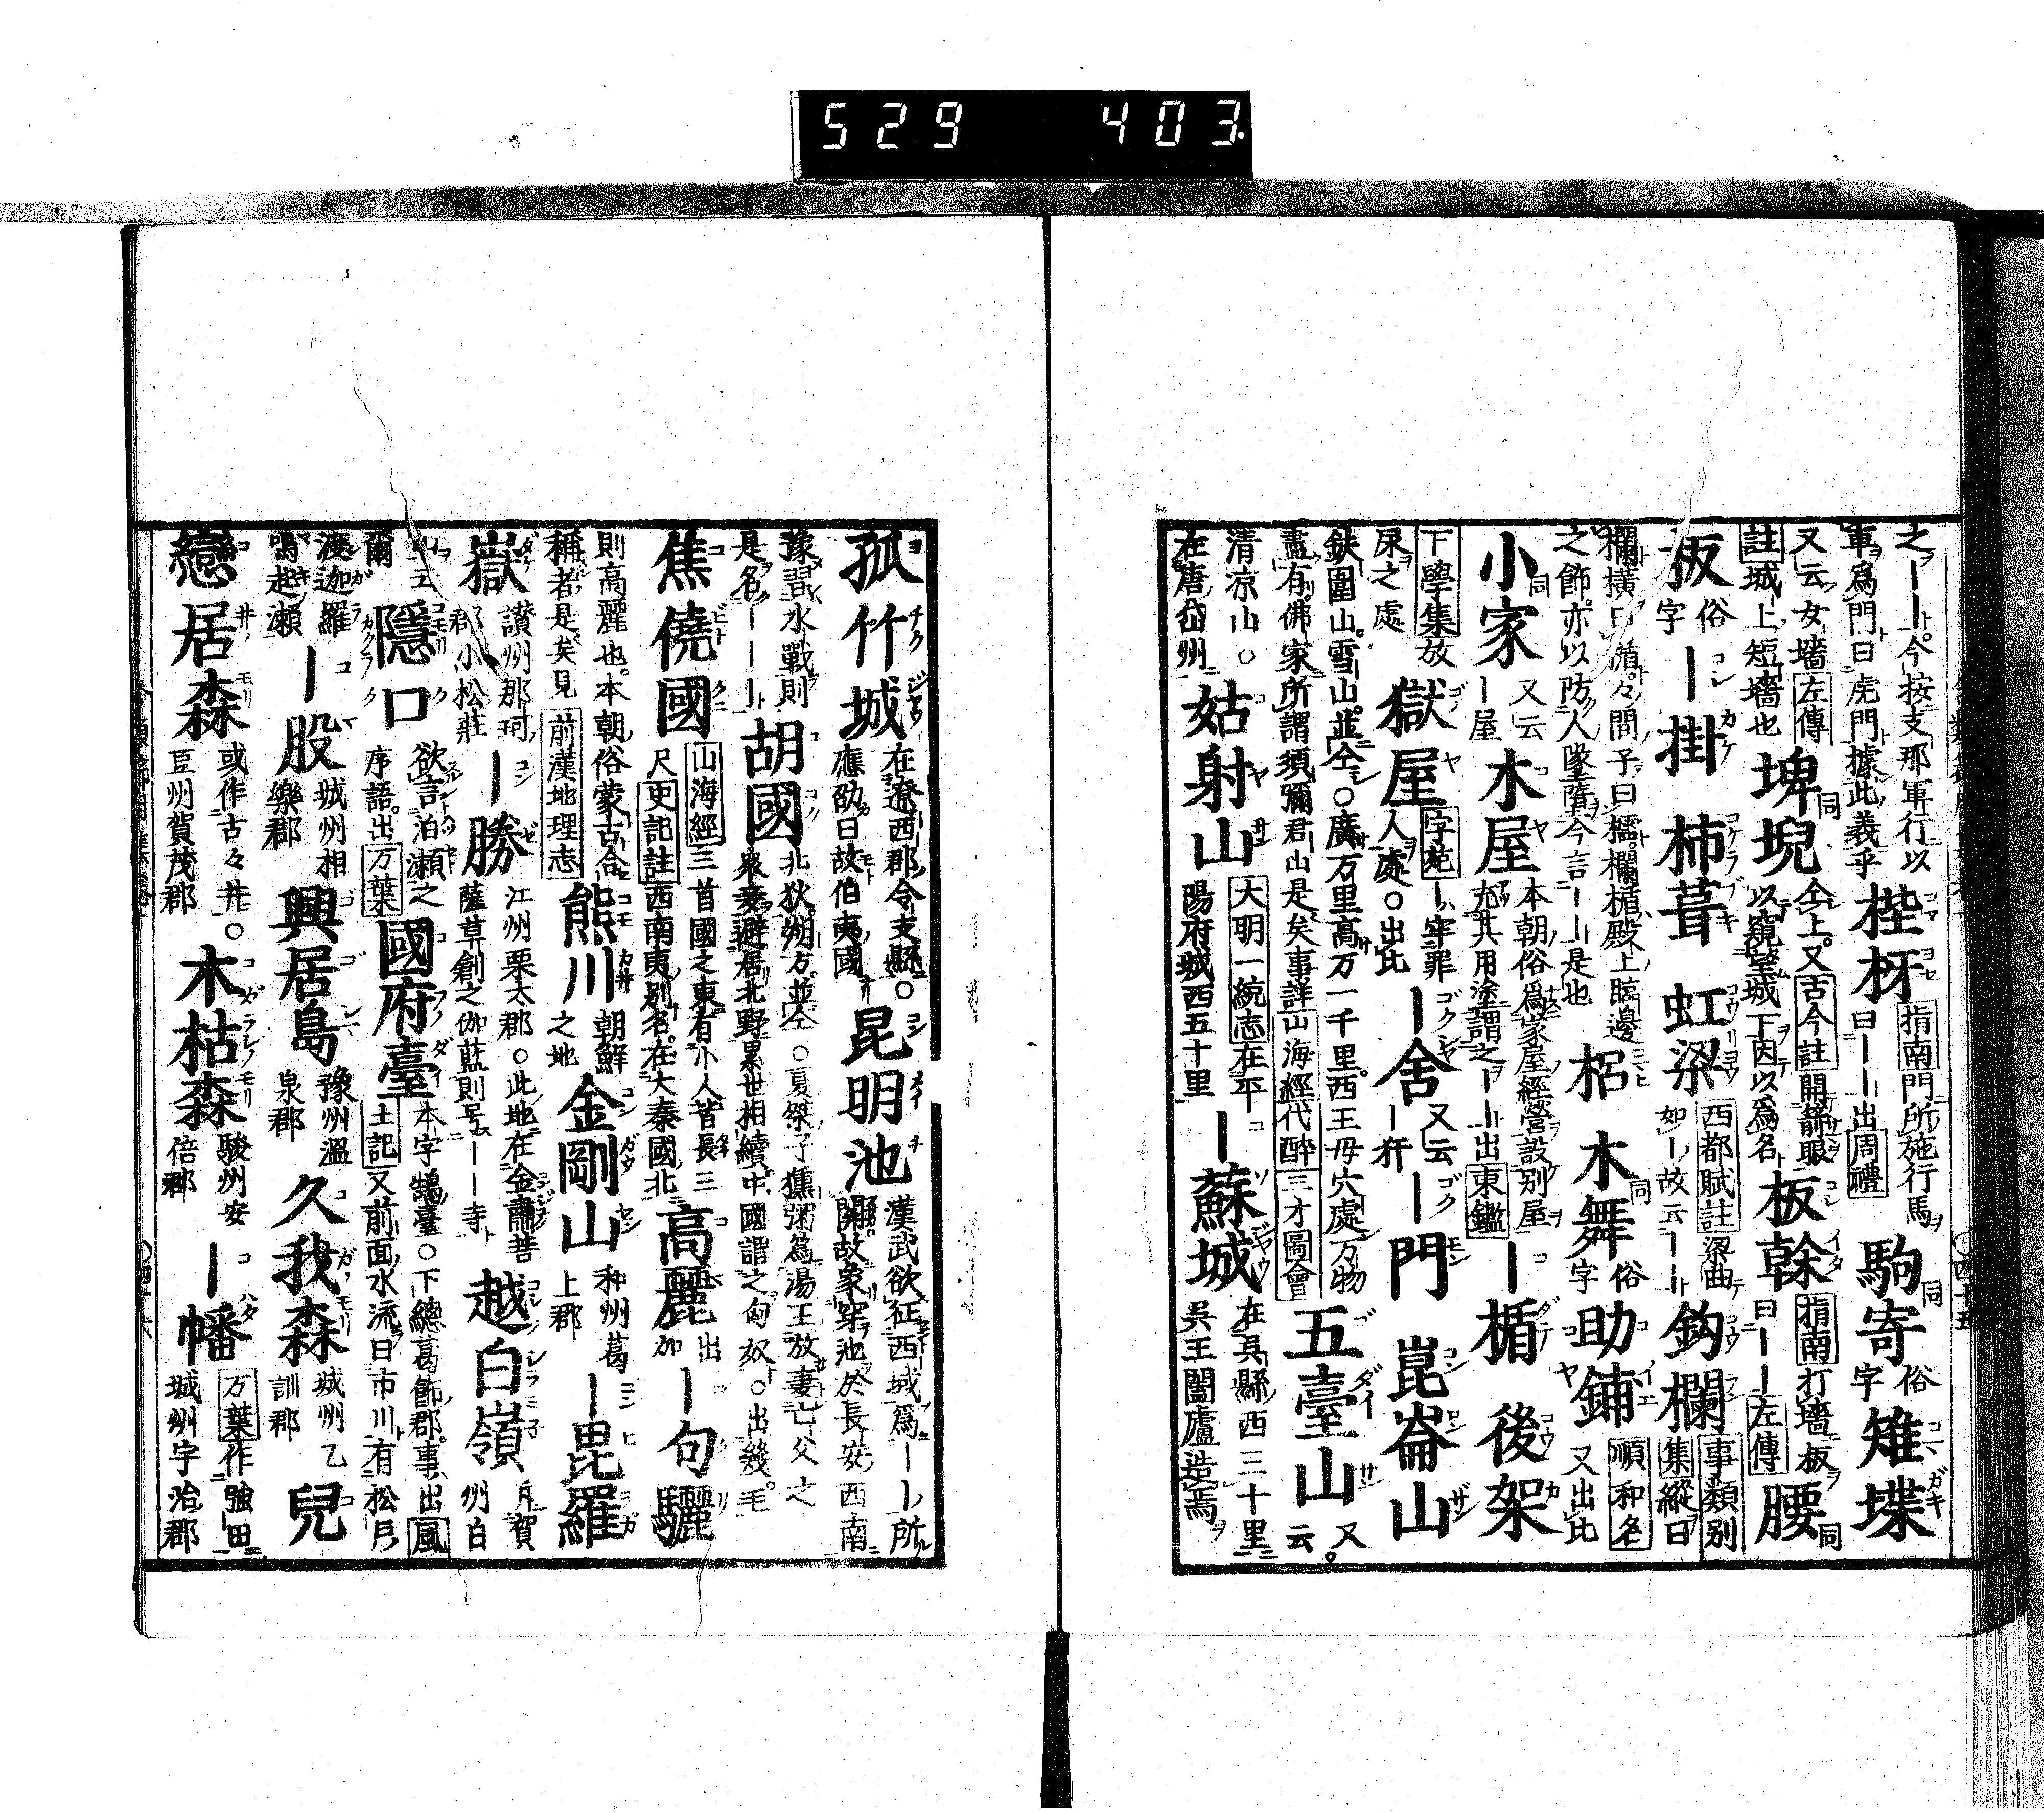 529 403
之ーー今按支那軍行以
軍爲門曰虎門據此義乎
梐枑
指南門所施行馬
曰ーー出周禮
駒寄
同俗字
雉堞
又云女墻左傳
註城上短墻也
埤堄
同
仝上又古今註開箭眼
以窺望城下因以爲名
板幹
指南打墻板
曰ーー左傳
腰
同
板
俗字
ー掛
柿葺
虹梁
西都賦註梁曲
如ー故云ーー
鈎欄
事類別
集縱曰
欄橫曰楯々間子曰櫺欄楯殿上臨邊
之飾亦以防人墜隋今言ーー是也
梠
木舞
同俗字
助鋪
順和名
又出比
小家
同
又云
ー屋
木屋
本朝俗爲家屋經營設別屋
充其用塗謂之ーー出東鑑
ー楯
後架
下學集放
屎之處
獄屋
字苑ー牢罪
人處○出比
ー舍
又云
ー犴
ー門
崑崙山
鉄圍山雪山並仝○廣万里高万一千里西王母穴處万物
盡有佛家所謂須彌君山是矣事詳山海經代醉三才圖會
五臺山
又云
清凉山○
在唐岱州
姑射山
大明一統志在平
陽府城西五十里
ー蘇城
在吳縣西三十里
吳王闔廬造焉
孤竹城
在遼西郡令支縣○
應劭曰故伯夷國
昆明池
漢武欲征西域爲ーー所
開故象穿池於長安西南
豫習水戰則
是名ーーー
胡國
北狄朔方並仝○夏桀子獯粥爲湯王放妻亡父之
衆妾避居北野累世相續中國謂之匈奴○出幾毛
焦僥國
山海經三首國之東有小人皆長三
尺史記註西南夷別名在大秦國北
高麗
出加
ー句驪
則高麗也本朝俗蒙古合
稱者是矣見前漢地理志
熊川
朝鮮
之地
金剛山
和州葛
上郡
ー毘羅
嶽
讃州那珂
郡小松莊
ー勝
江州栗太郡○此地在金肅菩
薩草創之伽藍則号ーー寺
越白嶺
賀
州白
山云
爾
隱口
欲言泊瀬之
序語出万葉
國府臺
本字鵠臺○下總葛飾郡事出風
土記又前面水流曰市川有松戸
渡迦羅
鳴起瀬
ー股
城州相
樂郡
興居島
豫州溫
泉郡
久我森
城州乙
訓郡
兒
戀居森
或作古々井○
豆州賀茂郡
木枯森
駿州安
倍郡
ー幡
万葉作強田
城州宇治郡